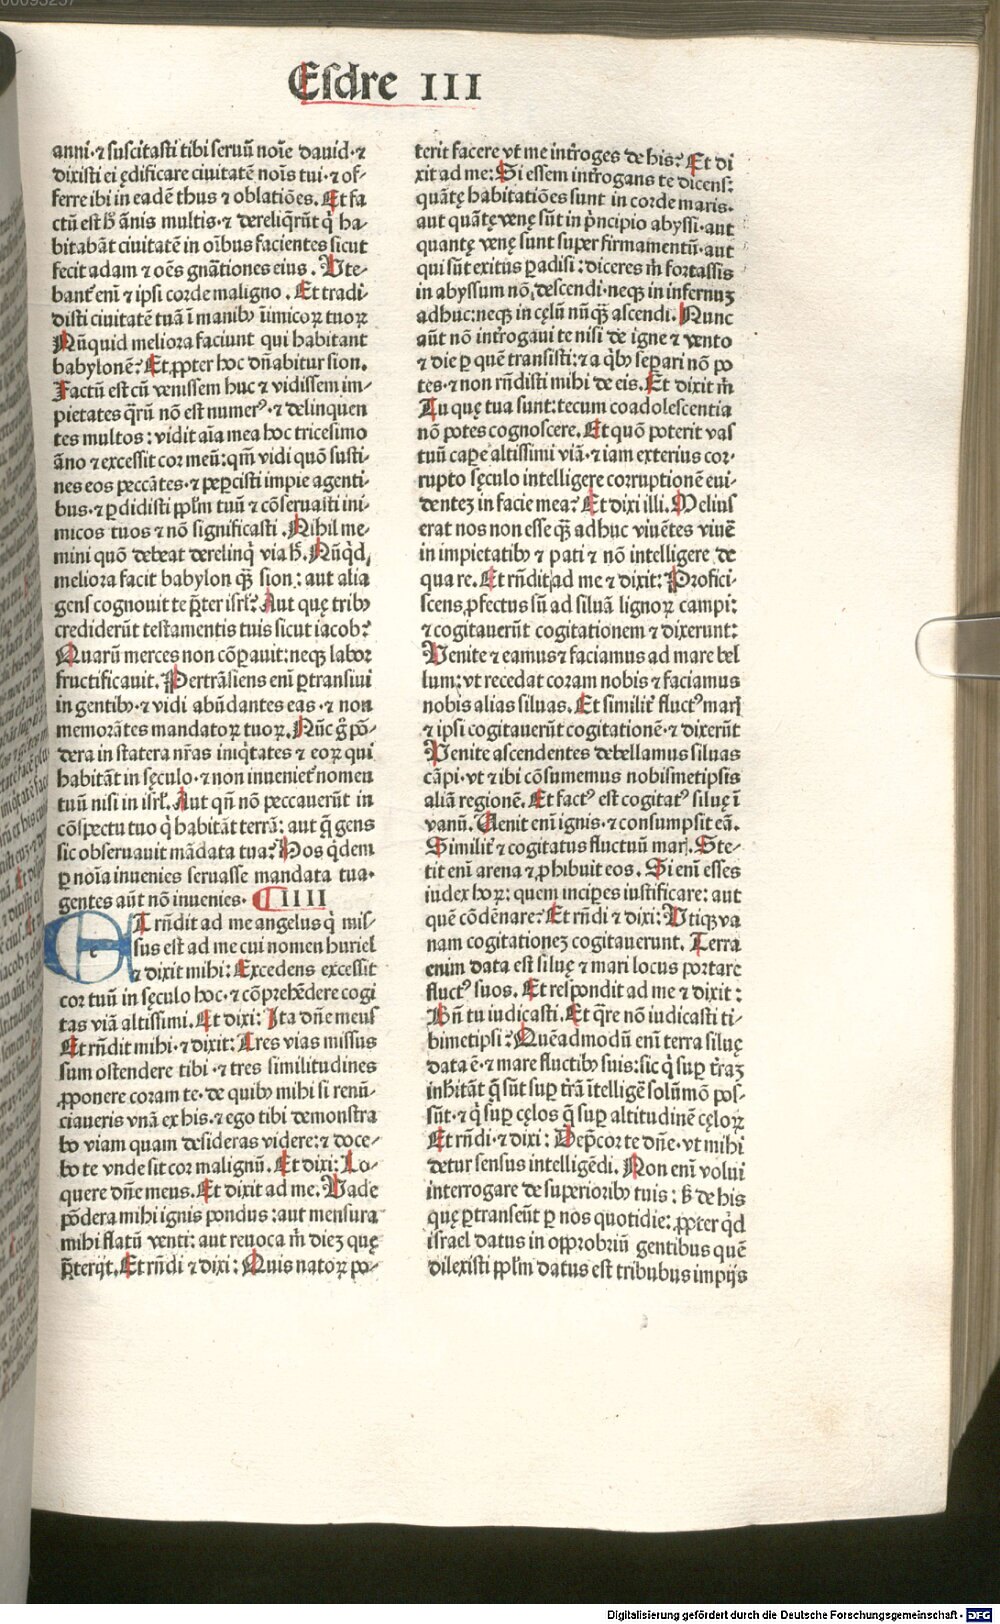 Esdre III
anni· ⁊ suscitasti tibi seruū noīe dauid· ⁊
dixisti ei ędificare ciuitatē noīs tui· ⁊ of-
ferre ibi in eadē thus ⁊ oblatiōes. Et fa
ctū est h̄ ānis multis· ⁊ dereliq̄rūt q̇ ha-
bitabāt ciuitatē in oībus facientes sicut
fecit adam ⁊ oēs gnātiones eius. Vte-
bant̄ eni ⁊ ipsi corde maligno. Et tradi-
disti ciuitatē tuā ī manibꝫ īimicoꝝ tuoꝝ
Nūquid meliora faciunt qui habitant
babylonē? Et ꝓpter hoc dn̄abitur sion.
Factū est cū venissem huc ⁊ vidissem im-
pietates q̄rū nō est numerꝰ· ⁊ delinquen
tes multos: vidit aīa mea hoc tricesimo
āno ⁊ excessit cor meū: qm̄ vidi quō susti-
nes eos peccātes· ⁊ peꝑcisti impie agenti-
bus· ⁊ ꝑdidisti pplm̄ tuū ⁊ cōseruasti ini-
micos tuos ⁊ nō significasti. Nihil me-
mini quō debeat derelinq̇ via h̄. Nūq̇d,
meliora facit babylon q̄ȝ sion: aut alia
gens cognouit te p̄ter isrl̄? Aut quę tribꝫ
crediderūt testamentis tuis sicut iacob?
Quarū merces non cōꝑauit: neqꝫ labor
fructificauit. Pertrāsiens eni ꝑtransiui
in gentibꝫ· ⁊ vidi abūdantes eas· ⁊ non
memorātes mandatoꝝ tuoꝝ. Nūc g̊ pō-
dera in statera nr̄as iniq̇tates ⁊ eoꝝ qui
habitāt in sęculo· ⁊ non inueniet̄ nomen
tuū nisi in isrl̄. Aut qn̄ nō peccauerūt in
cōspectu tuo q̇ habitāt terrā: aut q̄ gens
sic obseruauit mādata tua? Hos q̇dem
ꝑ noīa inuenies seruasse mandata tua·
gentes aūt nō inuenies. IIII
Et rn̄dit ad me angelus q̇ mis-
sus est ad me cui nomen huriel
⁊ dixit mihi: Excedens excessit
cor tuū in sęculo hoc· ⁊ cōprehēdere cogi
tas viā altissimi. Et dixi: Ita dn̄e meus
Et rn̄dit mihi· ⁊ dixit: Tres vias missus
sum ostendere tibi· ⁊ tres similitudines
ꝓponere coram te· de quibꝫ mihi si renū-
ciaueris vnā ex his· ⁊ ego tibi demonstra
bo viam quam desideras videre: ⁊ doce-
bo te vnde sit cor malignū. Et dixi: Lo-
quere dn̄e meus. Et dixit ad me. Vade
pōdera mihi ignis pondus: aut mensura
mihi flatū venti: aut reuoca m̄ dieȝ quę
p̄terijt. Et rn̄di ⁊ dixi: Quis natoꝝ po-
terit facere vt me int̄roges de his? Et di
xit ad me: Si essem int̄rogans te dicens:
quātę habitatiōes sunt in corde maris·
aut quātę venę sūt in ṗncipio abyssi· aut
quantę venę sunt super firmamentū· aut
qui sūt exitus ꝑadisi: diceres m̄ fortassis
in abyssum nō descendi· neqꝫ in infernuȝ
adhuc: neqꝫ in cęlū nūq̄ȝ ascendi. Nunc
aūt nō int̄rogaui te nisi de igne ⁊ vento
⁊ die ꝑ quē transisti: ⁊ a q̇bꝫ seꝑari nō po
tes· ⁊ non rn̄disti mihi de eis. Et dixit m̄
Tu quę tua sunt: tecum coadolescentia
nō potes cognoscere. Et quō poterit vas
tuū caꝑe altissimi viā· ⁊ iam exterius cor-
rupto sęculo intelligere corruptionē eui-
denteȝ in facie mea? Et dixi illi. Melius
erat nos non esse q̄ȝ adhuc viuētes viuē
in impietatibꝫ ⁊ pati ⁊ nō intelligere de
qua re. Et rn̄dit ad me ⁊ dixit: Profici-
scens ꝓfectus sū ad siluā lignoꝝ campi:
⁊ cogitauerūt cogitationem ⁊ dixerunt:
Venite ⁊ eamus ⁊ faciamus ad mare bel
lum: vt recedat coram nobis ⁊ faciamus
nobis alias siluas. Et similit̄ fluctꝰ marꝭ
⁊ ipsi cogitauerūt cogitationē· ⁊ dixerūt
Venite ascendentes debellamus siluas
cāpi· vt ⁊ ibi cōsumemus nobismetipsis
aliā regionē. Et factꝰ est cogitatꝰ siluę ī
vanū. Uenit eni ignis· ⁊ consumpsit eā.
Similit̄ ⁊ cogitatus fluctuū marꝭ. Ste-
tit eni arena ⁊ ꝓhibuit eos. Si eni esses
iudex hoꝝ: quem inciꝑes iustificare: aut
quē cōdēnare? Et rn̄di ⁊ dixi: Vtiqꝫ va
nam cogitationeȝ cogitauerunt. Terra
enim data est siluę ⁊ mari locus portare
fluctꝰ suos. Et respondit ad me ⁊ dixit:
Bn̄ tu iudicasti. Et q̄re nō iudicasti ti-
bimetipsi? Quēadmodū eni terra siluę
data ē· ⁊ mare fluctibꝫ suis: sic q̇ suꝑ tr̄aȝ
inhītāt q̄ sūt suꝑ tr̄ā ītelligē solūmō pos-
sūt· ⁊ q̇ suꝑ cęlos q̄ suꝑ altitudinē cęloꝝ
Et rn̄di· ⁊ dixi: Dep̄cor te dn̄e· vt mihi
detur sensus intelligēdi. Non eni volui
interrogare de superioribꝫ tuis: sꝫ de his
quę ꝑtranseūt ꝑ nos quotidie: ꝓpter q̇d
israel datus in opprobriū gentibus quē
dilexisti pplm̄ datus est tribubus impijs
Digitalisierung gefördert durch die Deutsche Forschungsgemeinschaft - DFG